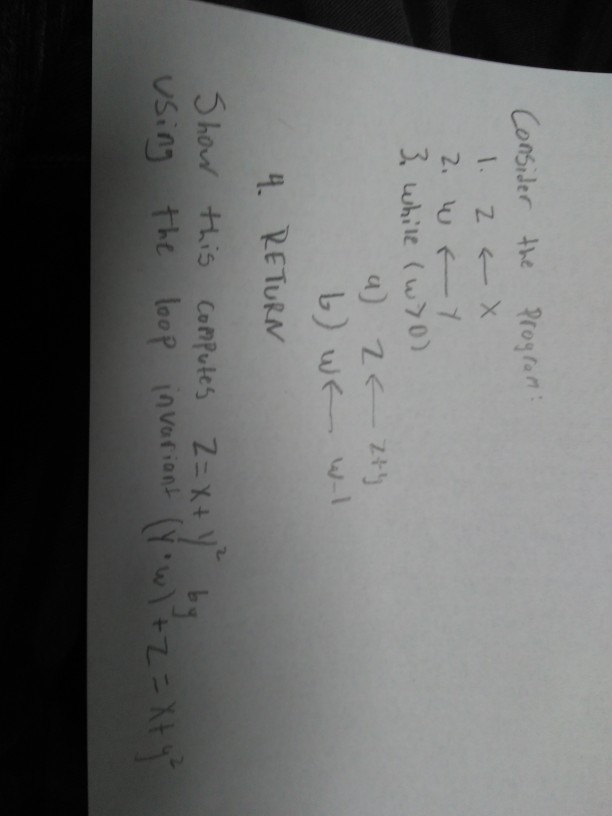 Consider the Program:
1. Z ← X
2. w ← Y
3. while (w>0)
a) Z ← Z+y
b) w ← w-1
4. RETURN
Show this computes Z = X + Y² by
using the loop invariant (Y·w) + Z = X + y²